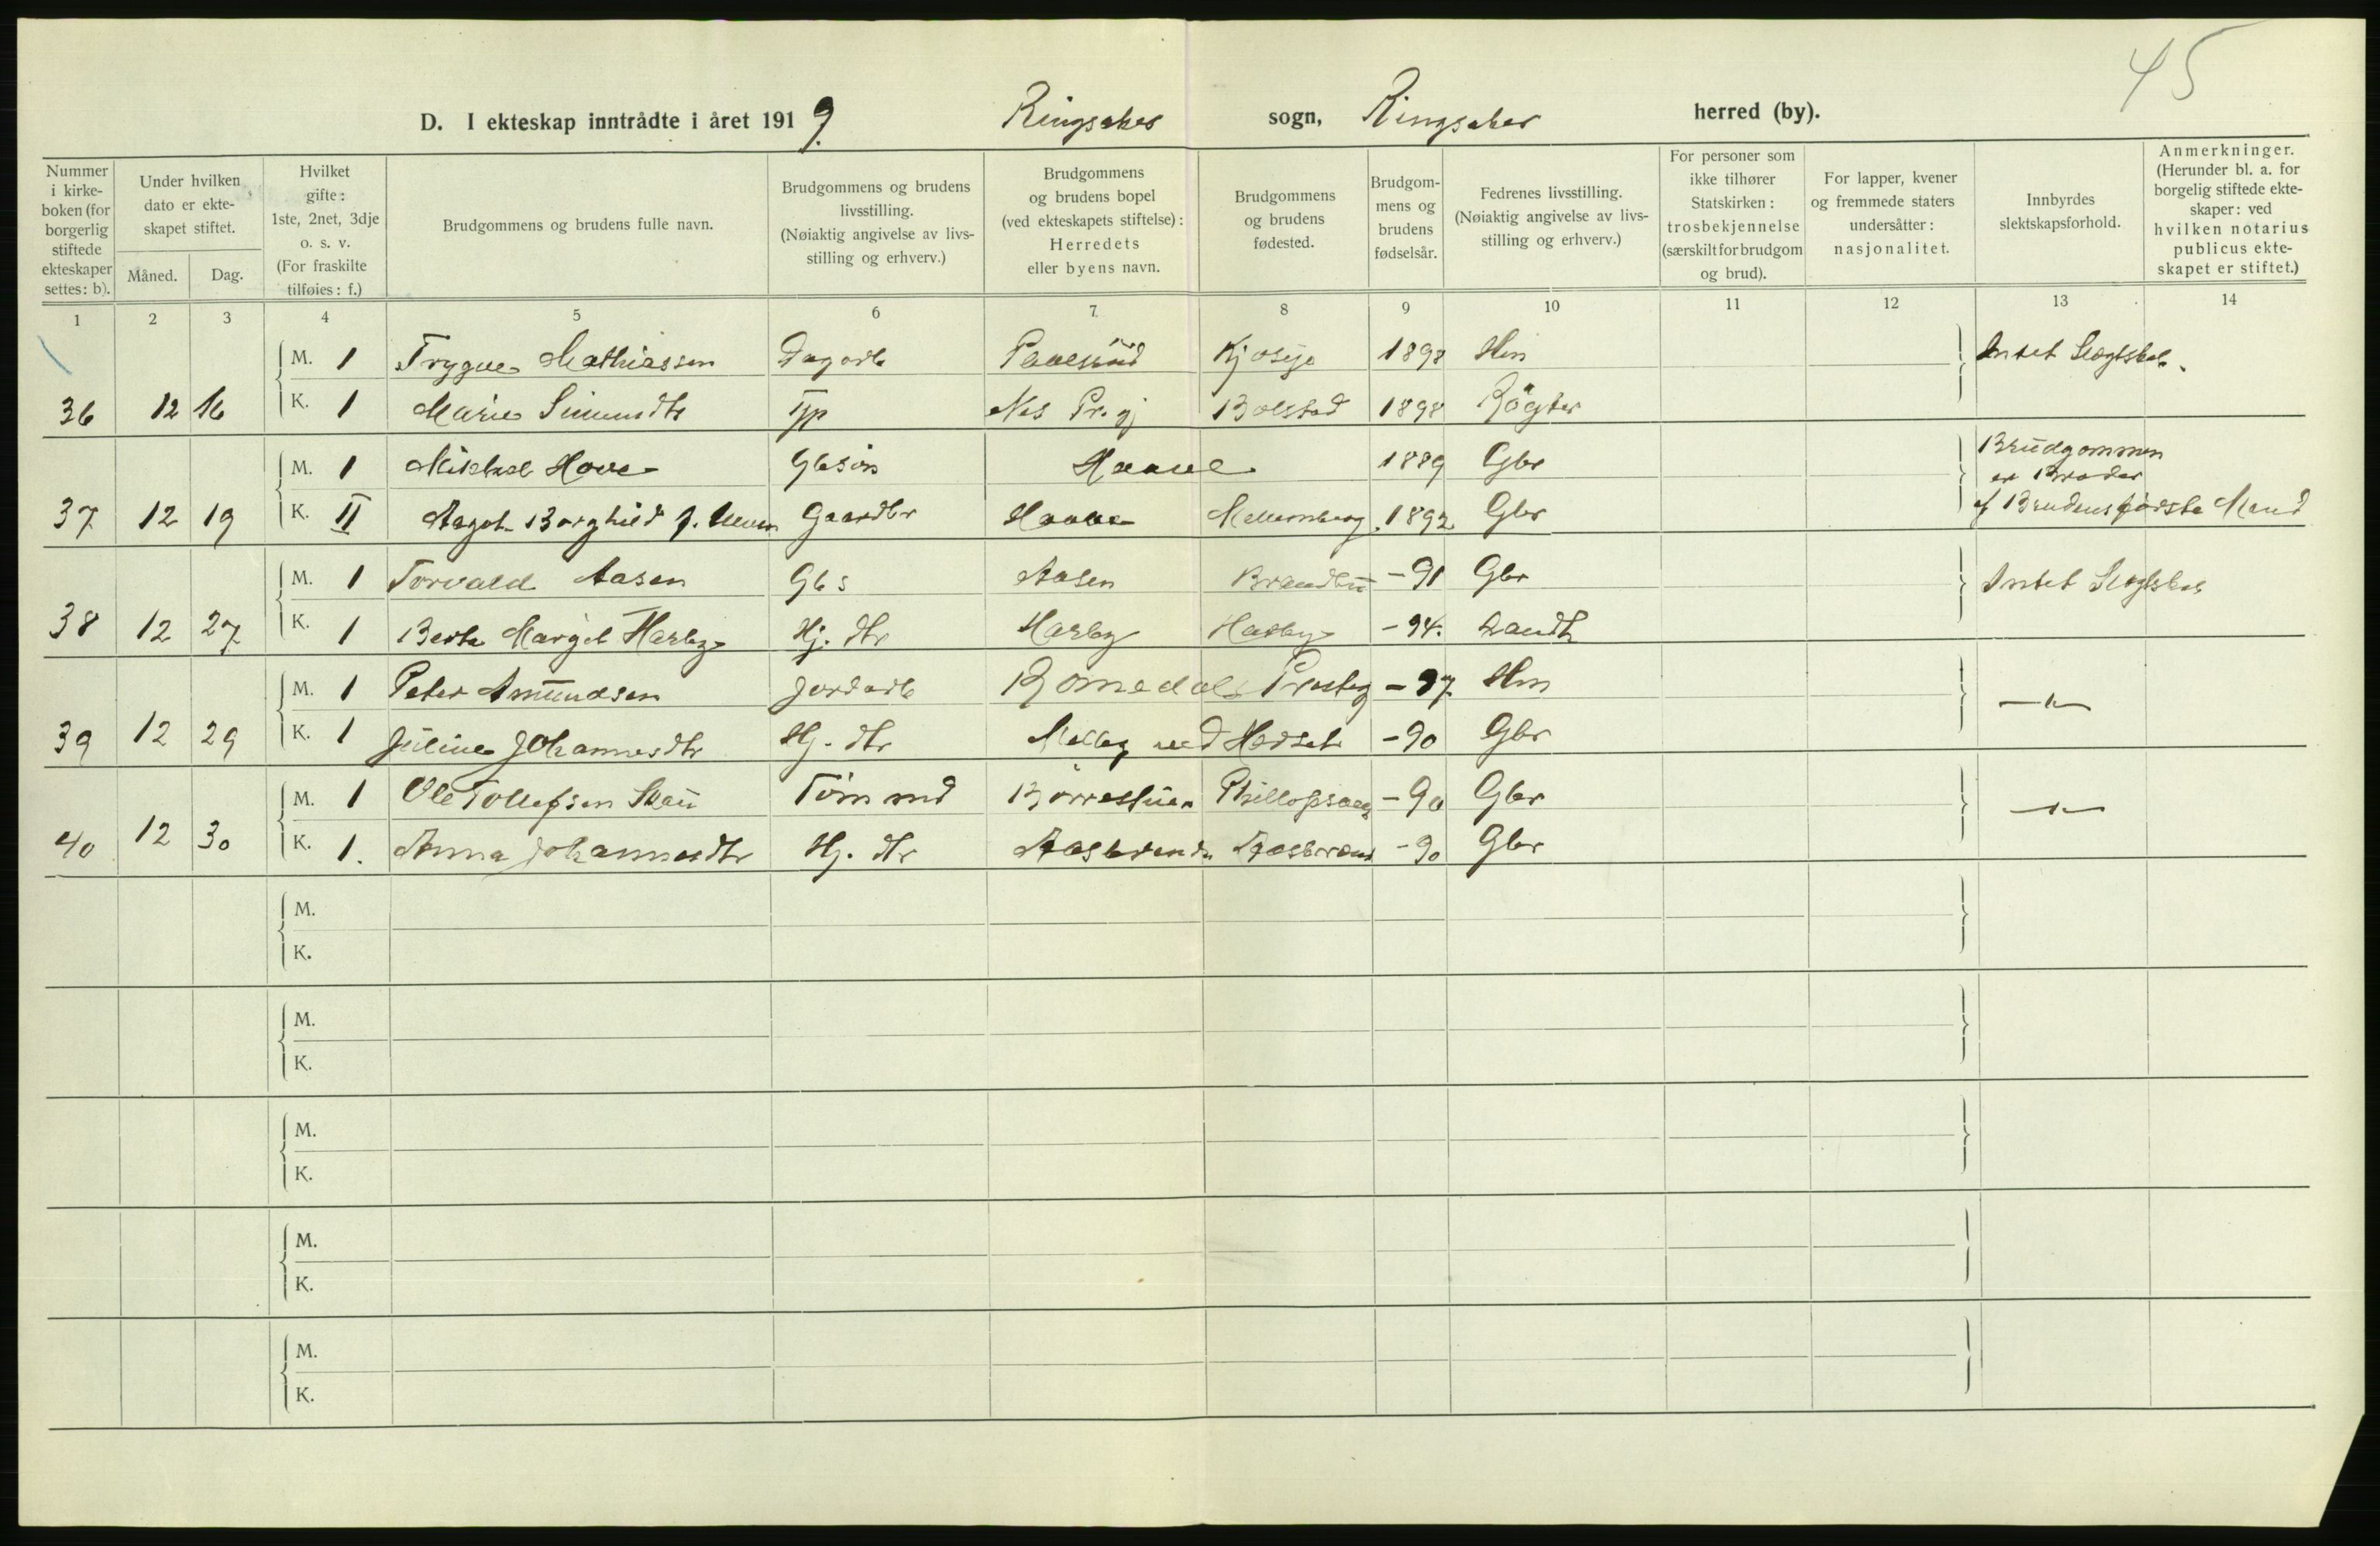 45
D. I ekteskap inntrådte i året 1919. Ringsaker sogn, Ringsaker herred (by).
Nummer i kirke-boken (for borgerlig stiftede ekteskaper settes: b).
Under hvilken dato er ekte-skapet stiftet.
Måned. Dag.
Hvilket gifte: 1ste, 2net, 3dje o. s. v. (For fraskilte tilføies: f.)
Brudgommens og brudens fulle navn.
Brudgommens og brudens livsstilling. (Nøiaktig angivelse av livs-stilling og erhverv.)
Brudgommens og brudens bopel (ved ekteskapets stiftelse): Herredets eller byens navn.
Brudgommens og brudens fødested.
Brudgom-mens og brudens fødselsår.
Fedrenes livsstilling. (Nøiaktig angivelse av livs-stilling og erhverv.)
For personer som ikke tilhører Statskirken: trosbekjennelse (særskilt for brudgom og brud).
For lapper, kvener og fremmede staters undersåtter: nasjonalitet.
Innbyrdes slektskapsforhold.
Anmerkninger. (Herunder bl. a. for borgelig stiftede ekte-skaper: ved hvilken notarius publicus ekte-skapet er stiftet.)
1 2 3 4 5 6 7 8 9 10 11 12 13 14
M. 1 Trygve Mathiassen Dagarb 1898 Hm Intet Slægtskab.
36 12 16 K. 1 Marie Simensdtr Tjp Nes Pr.gj Bolstad 1898 Røgter
M. 1 Mikkel Hove Gbsøn Haave 1889 Gbr Brudgommen er Broder
37 12 19 K. II Aagot Borghild Gaardbr Haave 1892 Gbr af Brudens første Mand
M. 1 Torvald Aasen Gbs Aasen Brandbu -91 Gbr Intet Slægtskab
38 12 27 K. 1 Berte Margit Harby Hj. dtr Harby Harby -94. Landh
M. 1 Peter Amundsen Jordarb Romedals Presteg -97. Hm —"—
39 12 29 K. 1 Juline Johannesdtr Hj. dtr -90 Gbr
M. 1 Ole Tollefsen Skau Tømmd -90 Gbr —"—
40 12 30 K. 1. Anna Johannesdtr Hj. dtr -90 Gbr
M.
K.
M.
K.
M.
K.
M.
K.
M.
K.